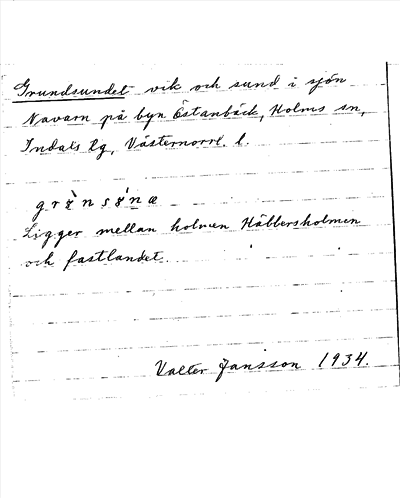 Grundsundet vik och sund i sjön
Navarn på byn Östanbäck, Holms sn,
Indals tg, Västernorrl. l.
Ligger mellan holmen Häbbersholmen
och fastlandet.
Valter Jansson 1934.